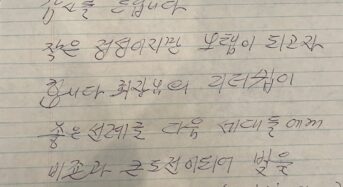 감사를 드립니다
작은 정성이지만 보탬이 되고자
합니다 회장님의 리더쉽이
좋은 선례를 다음 세대들에게
비존과 큰 도전이 되어 벌을